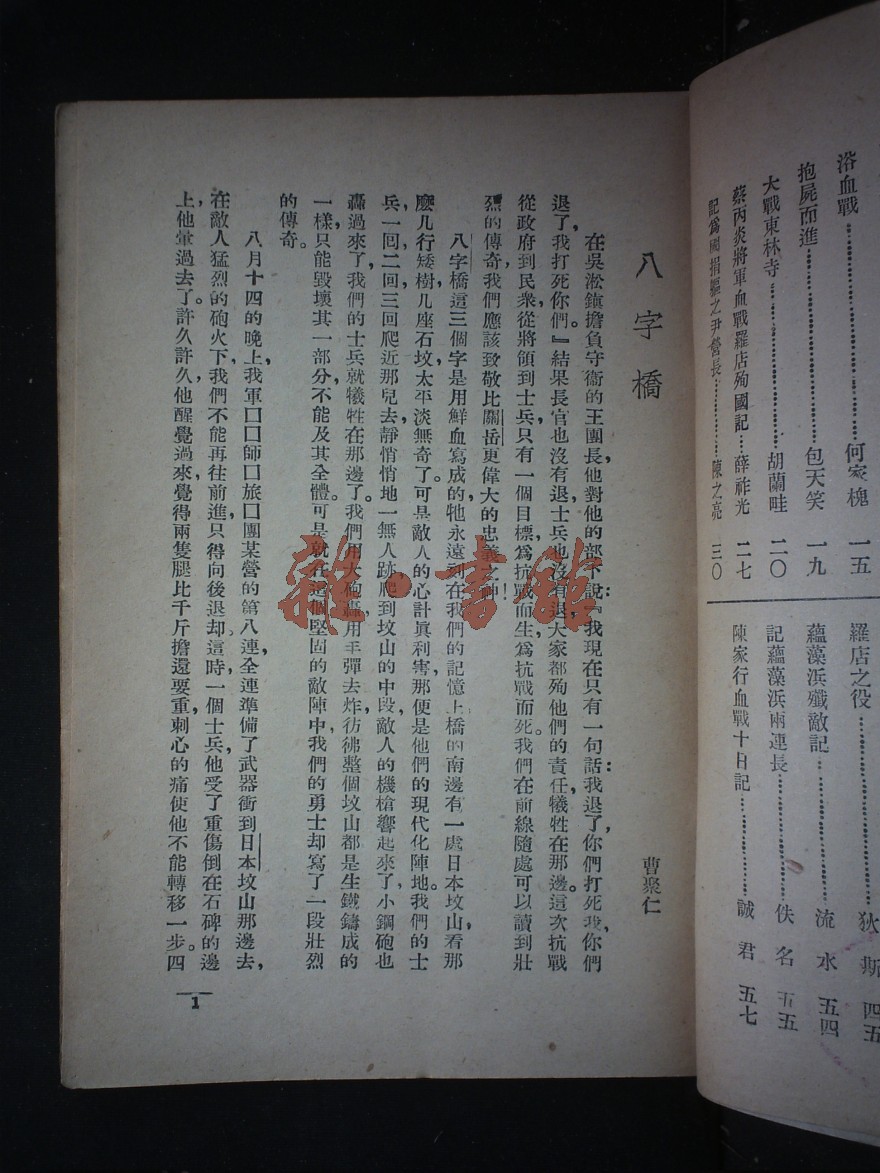 浴血戰…………何家槐 一五
抱屍而進…………包天笑 一九
大戰東林寺…………胡蘭畦 二〇
蔡丙炎將軍血戰羅店殉國記…薛祚光 二七
記爲國捐軀之尹營長…………陳之亮 三〇
羅店之役…………狄斯 四五
蘊藻浜殲敵記…………流水 五四
記蘊藻浜兩連長…………佚名 五五
陳家行血戰十日記…………誠君 五七
八字橋
曹聚仁
在吳淞鎮擔負守衞的王團長，他對他的部下說：『我現在只有一句話：我退了，你們打死我，你們
退了，我打死你們。』結果長官也沒有退，士兵也沒有退，大家都殉他們的責任，犧牲在那邊。這次抗戰
從政府到民衆，從將領到士兵，只有一個目標，爲抗戰而生，爲抗戰而死。我們在前線隨處可以讀到壯
烈的傳奇，我們應該致敬比關岳更偉大的忠義之神！
八字橋這三個字是用鮮血寫成的，牠永遠刻在我們的記憶上。橋的南邊有一處日本坟山，看那
麽几行矮樹，几座石坟，太平淡無奇了。可是敵人的心計眞利害，那便是他們的現代化陣地。我們的士
兵，一回，二回，三回爬近那兒去，靜悄悄地一無人跡，爬到坟山的中段，敵人的機槍響起來了，小鋼砲也
轟過來了，我們的士兵就犧牲在那邊了。我們用大砲轟，用手彈去炸，彷彿整個坟山都是生鐵鑄成的
一樣，只能毀壞其一部分，不能及其全體。可是就在這個堅固的敵陣中，我們的勇士却寫了一段壯烈
的傳奇。
八月十四的晚上，我軍囗囗師囗旅囗團某營的第八連，全連準備了武器衝到日本坟山那邊去，
在敵人猛烈的砲火下，我們不能再往前進，只得向後退却。這時一個士兵，他受了重傷倒在石碑的邊
上，他暈過去了。許久許久，他醒覺過來，覺得兩隻腿比千斤擔還要重，刺心的痛使他不能轉移一步。四
1
雜·書館